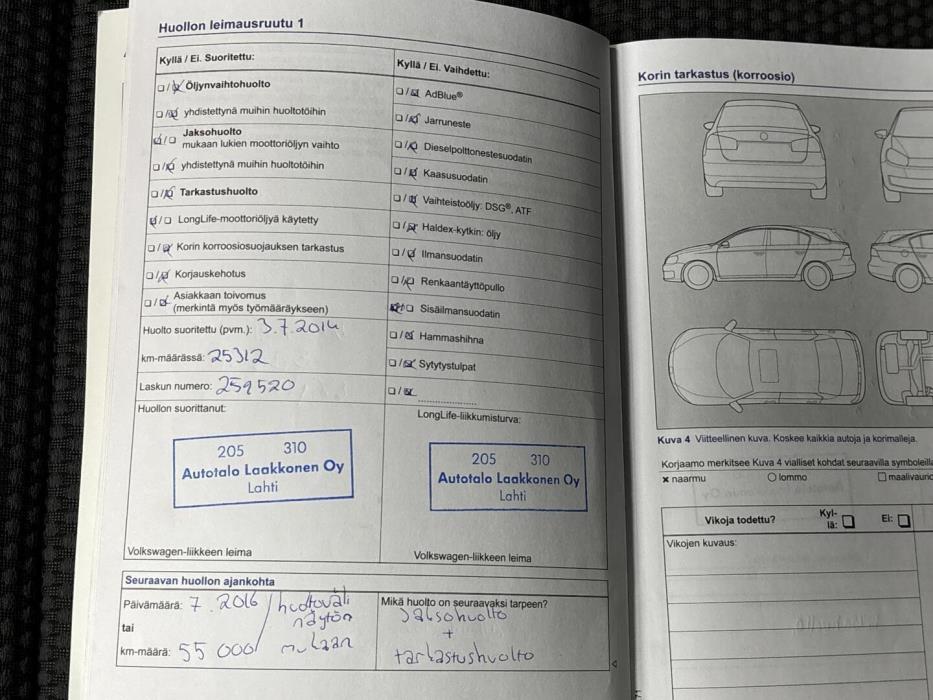 Huollon leimausruutu 1
Kyllä / Ei. Suoritettu:
Öljynvaihtohuolto
yhdistettynä muihin huoltotöihin
Jaksohuolto
mukaan lukien moottoriöljyn vaihto
yhdistettynä muihin huoltotöihin
Tarkastushuolto
LongLife-moottoriöljyä käytetty
Korin korroosiosuojauksen tarkastus
Korjauskehotus
Asiakkaan toivomus
(merkintä myös työmääräykseen)
Huolto suoritettu (pvm.): 3.7.2014
km-määrässä: 25312
Laskun numero: 259520
Huollon suorittanut:
205 310
Autotalo Laakkonen Oy
Lahti
Volkswagen-liikkeen leima
Kyllä / Ei. Vaihdettu:
AdBlue®
Jarruneste
Dieselpolttonestesuodatin
Kaasusuodatin
Vaihteistoöljy: DSG®, ATF
Haldex-kytkin: öljy
Ilmansuodatin
Renkaantäyttöpullo
Sisäilmansuodatin
Hammashihna
Sytytystulpat
LongLife-liikkumisturva:
205 310
Autotalo Laakkonen Oy
Lahti
Volkswagen-liikkeen leima
Seuraavan huollon ajankohta
Päivämäärä: 7.2016 / huoltoväli
näytön
tai
km-määrä: 55 000 mukaan
Mikä huolto on seuraavaksi tarpeen?
Jaksohuolto
+
tarkastushuolto
Korin tarkastus (korroosio)
Kuva 4 Viitteellinen kuva. Koskee kaikkia autoja ja korimalleja.
Korjaamo merkitsee Kuva 4 vialliset kohdat seuraavilla
× naarmu
lommo
Vikoja todettu?
Kyl-
lä:
Ei:
Vikojen kuvaus: